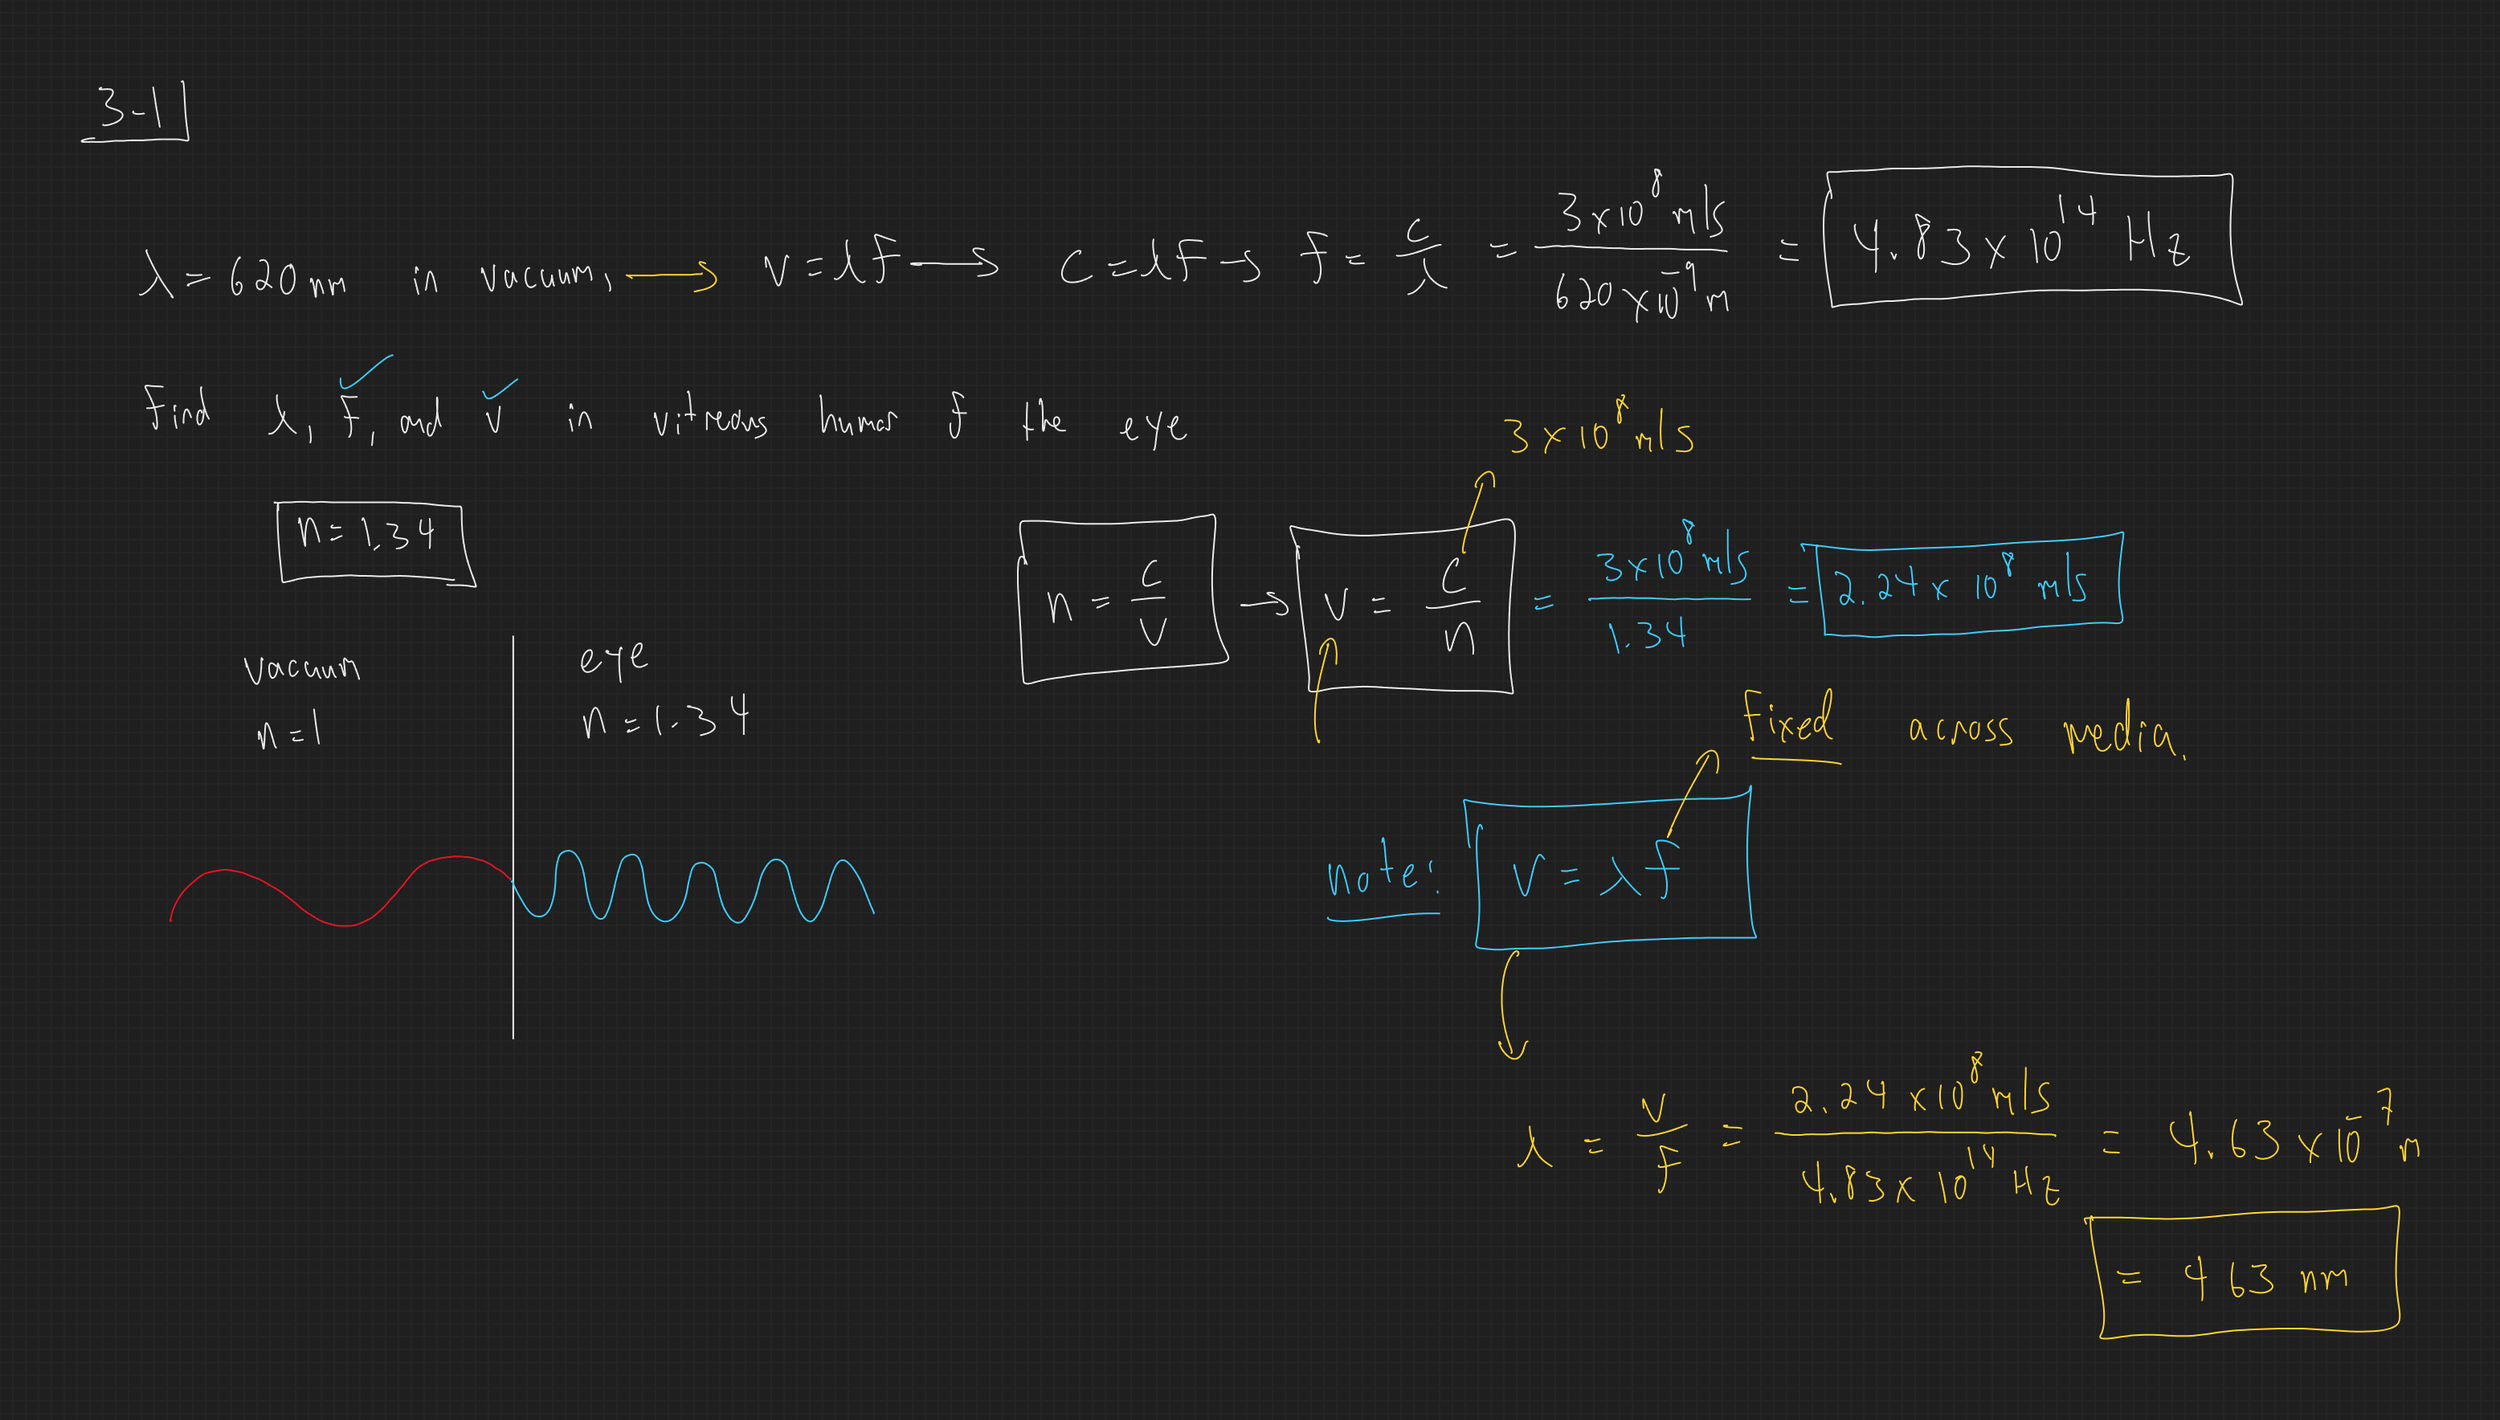 3-1
λ = 620nm in vacuum, → v = λf → c = λf → f = c/λ = 3×10⁸ m/s / 620×10⁻⁹ m = 4.83×10¹⁴ Hz
Find λ, f, and v in vitreous humor of the eye
3×10⁸ m/s
n = 1.34
n = c/v → v = c/n = 3×10⁸ m/s / 1.34 = 2.24×10⁸ m/s
vacuum
n=1
eye
n=1.34
Fixed across media.
Note: v = λf
λ = v/f = 2.24×10⁸ m/s / 4.83×10¹⁴ Hz = 4.63×10⁻⁷ m
= 463 nm